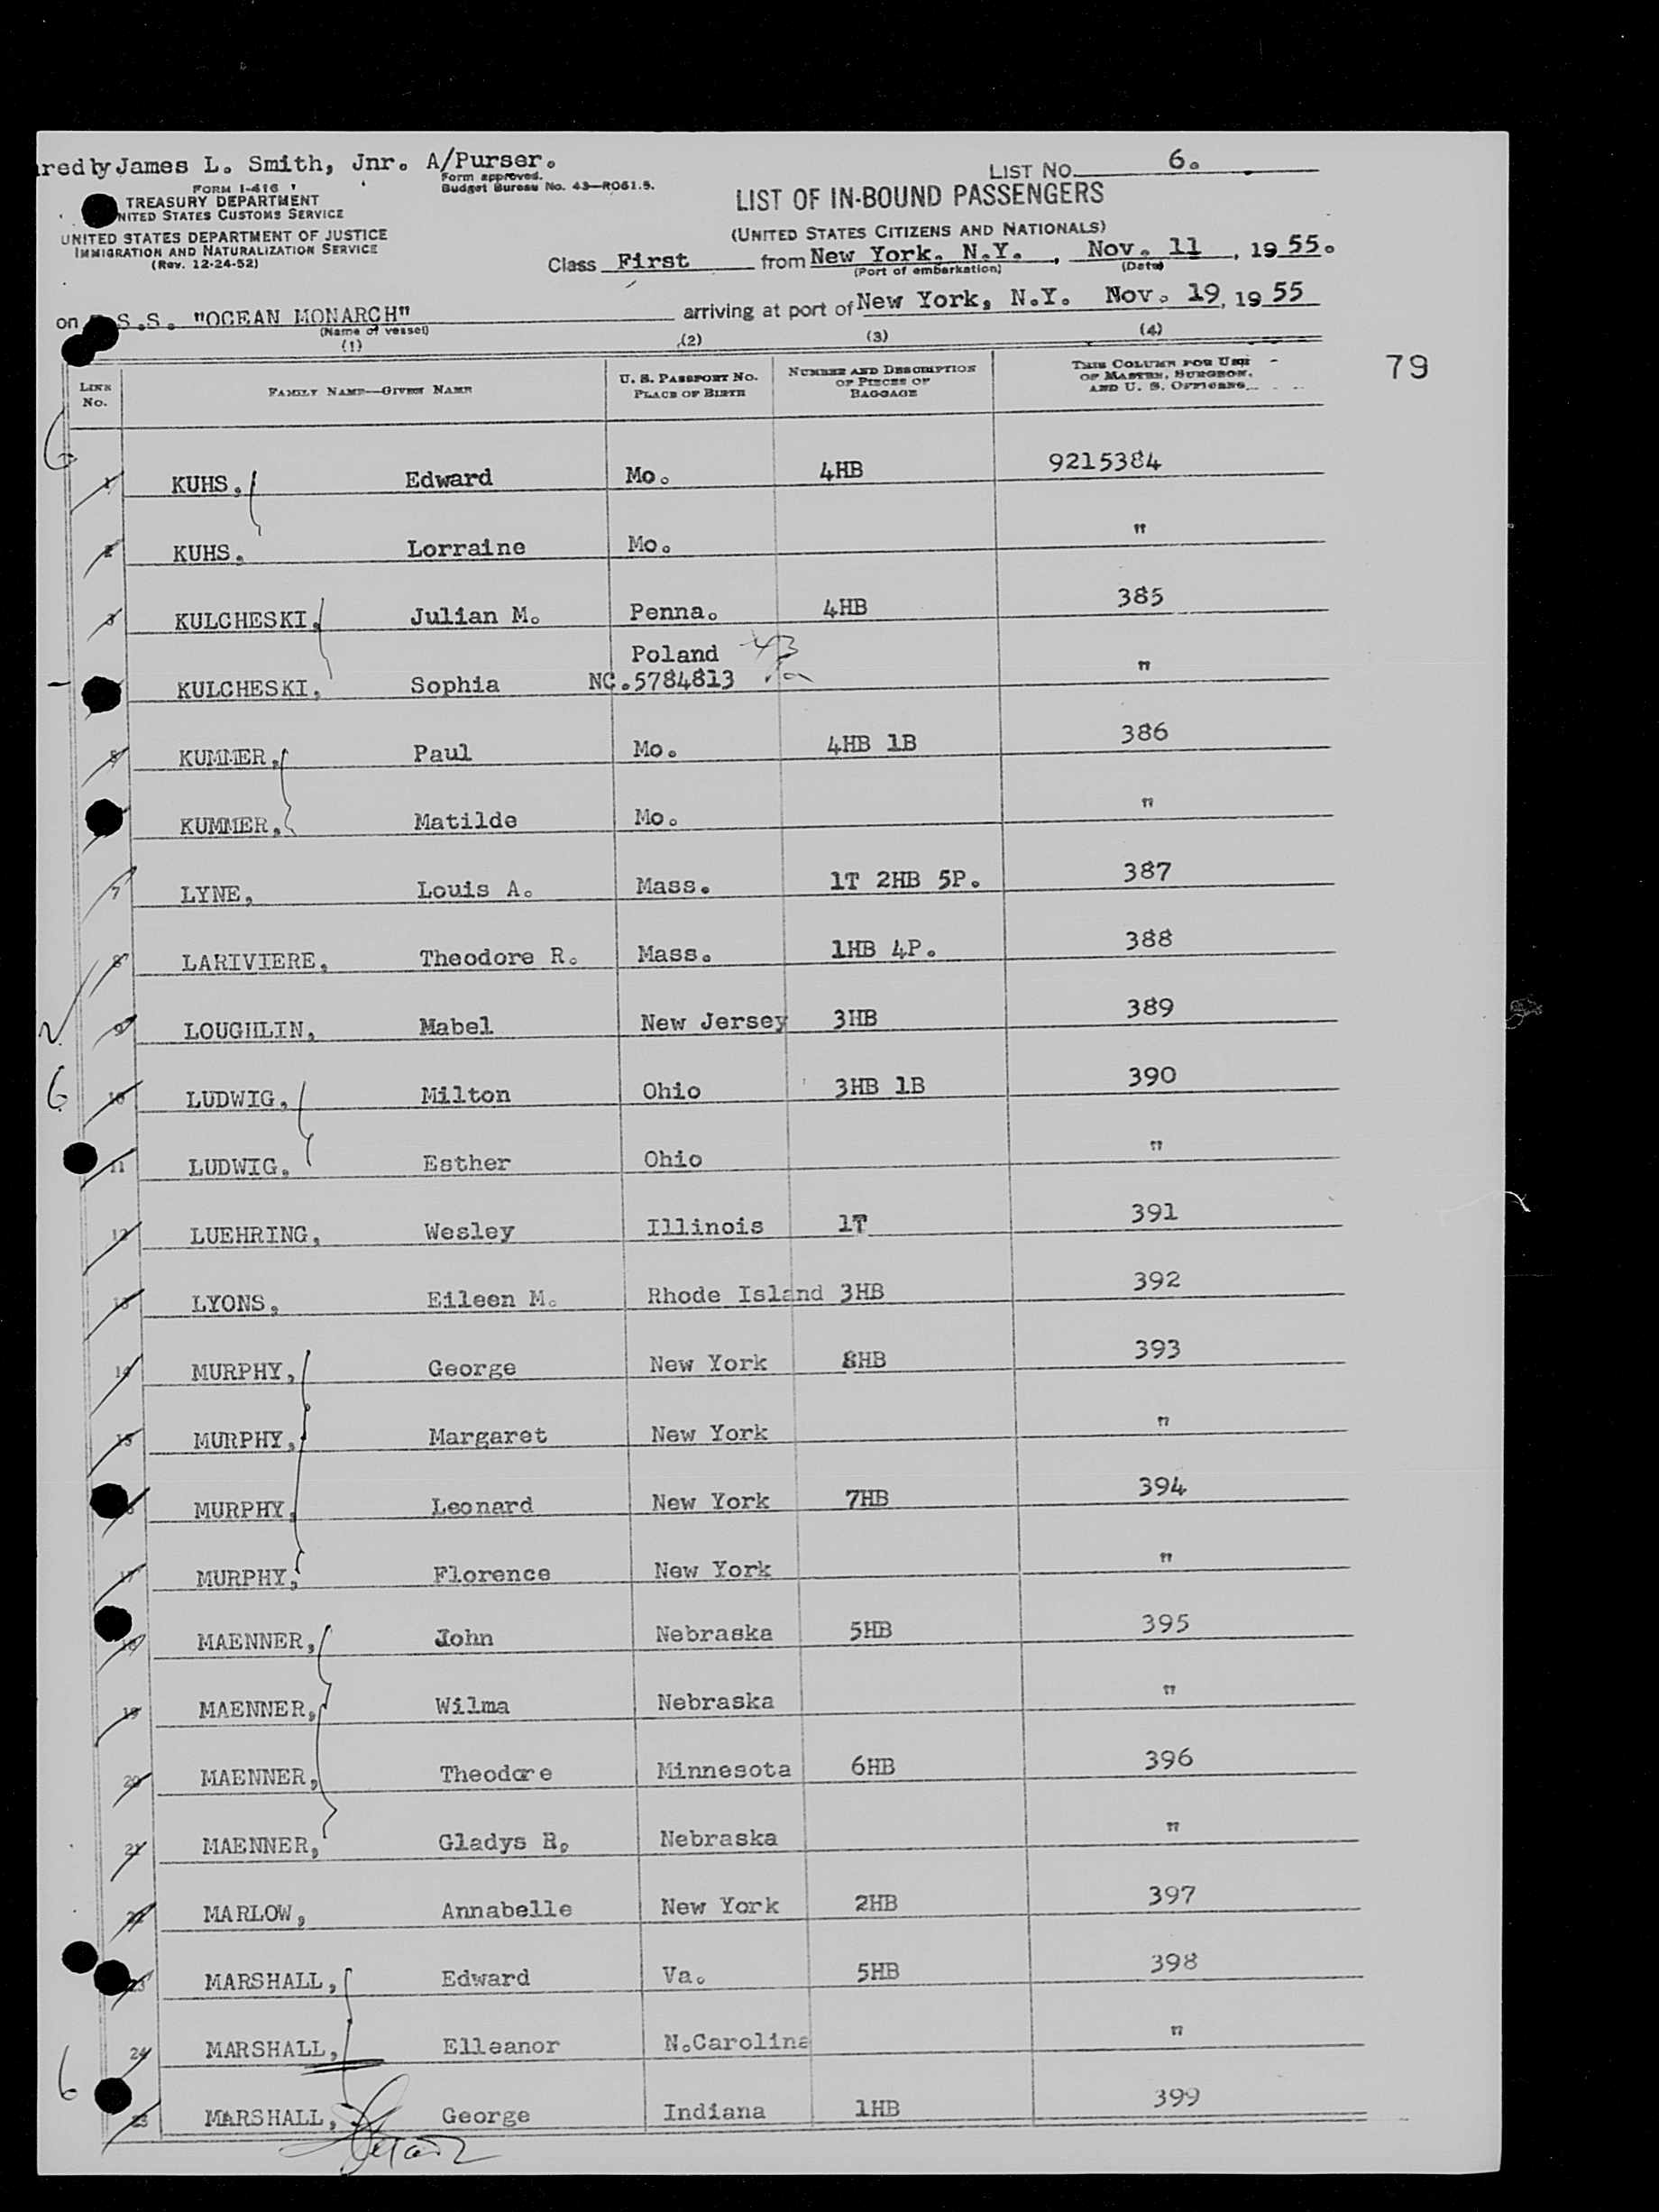 redby James L. Smith, Jnr. A/Purser.
LIST NO. 6.
FORM I-416
Form approved.
Budget Bureau No. 43—RO61.5.
TREASURY DEPARTMENT
UNITED STATES CUSTOMS SERVICE
UNITED STATES DEPARTMENT OF JUSTICE
IMMIGRATION AND NATURALIZATION SERVICE
(Rev. 12-24-52)
LIST OF IN-BOUND PASSENGERS
(UNITED STATES CITIZENS AND NATIONALS)
Class First from New York, N.Y., Nov. 11, 1955.
(Port of embarkation) (Date)
on S.S. "OCEAN MONARCH" arriving at port of New York, N.Y. Nov. 19, 1955
(Name of vessel)
(1) (2) (3) (4)
LINE No. FAMILY NAME—GIVEN NAME U. S. PASSPORT NO. PLACE OF BIRTH NUMBER AND DESCRIPTION OF PIECES OF BAGGAGE THIS COLUMN FOR USE OF MASTER, SURGEON, AND U. S. OFFICERS
79
6
1 KUHS, Edward Mo. 4HB 9215384
2 KUHS, Lorraine Mo. "
3 KULCHESKI, Julian M. Penna. 4HB 385
Poland
KULCHESKI, Sophia NC.5784813 "
5 KUMMER, Paul Mo. 4HB 1B 386
KUMMER, Matilde Mo. "
7 LYNE, Louis A. Mass. 1T 2HB 5P. 387
8 LARIVIERE, Theodore R. Mass. 1HB 4P. 388
9 LOUGHLIN, Mabel New Jersey 3HB 389
6
10 LUDWIG, Milton Ohio 3HB 1B 390
11 LUDWIG, Esther Ohio "
12 LUEHRING, Wesley Illinois 1T 391
13 LYONS, Eileen M. Rhode Island 3HB 392
14 MURPHY, George New York 8HB 393
15 MURPHY, Margaret New York "
MURPHY, Leonard New York 7HB 394
17 MURPHY, Florence New York "
18 MAENNER, John Nebraska 5HB 395
19 MAENNER, Wilma Nebraska "
20 MAENNER, Theodore Minnesota 6HB 396
21 MAENNER, Gladys R. Nebraska "
22 MARLOW, Annabelle New York 2HB 397
23 MARSHALL, Edward Va. 5HB 398
24 MARSHALL, Elleanor N.Carolina "
6
25 MARSHALL, George Indiana 1HB 399